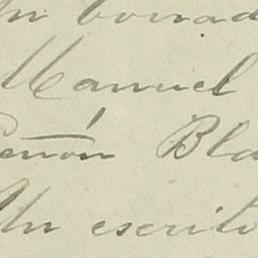 Un borrad
Manuel
eñón Bla
Un escrito